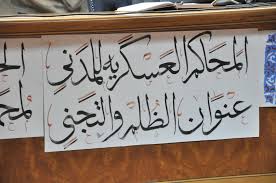 المحاكم العسكريه للمدني
عنوان الظلم والتجني